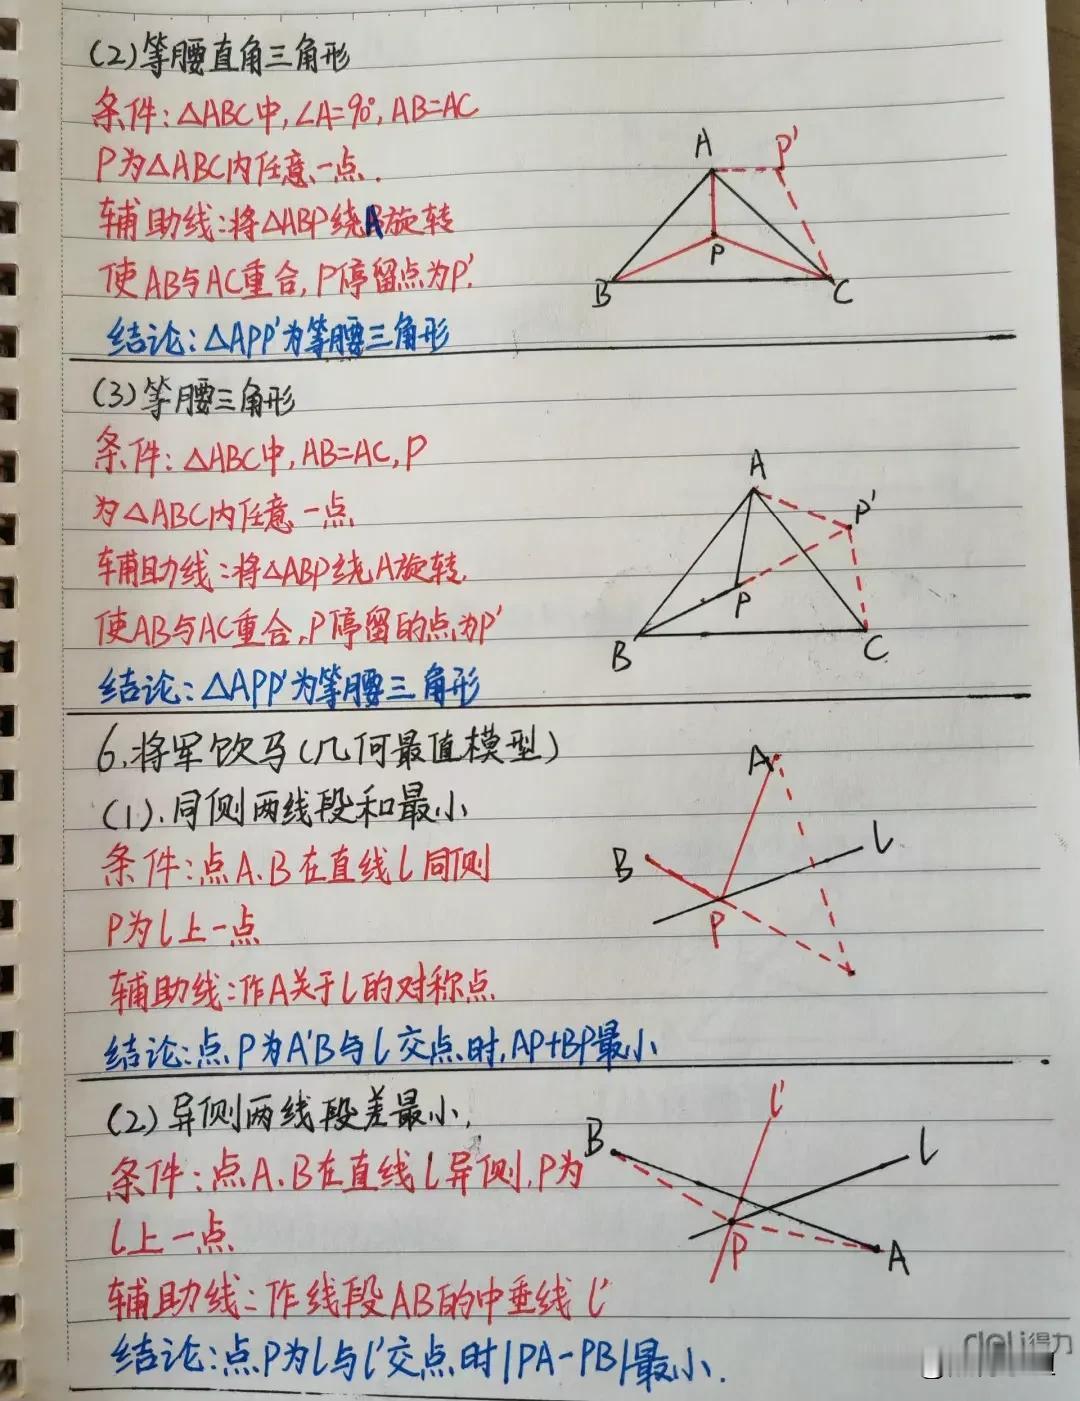 (2)等腰直角三角形
条件:△ABC中,∠A=90°,AB=AC
P为△ABC内任意一点.
辅助线:将△ABP绕A旋转
使AB与AC重合,P停留点为P'.
结论:△APP'为等腰三角形
A
P'
P
B
C
(3)等腰三角形
条件:△ABC中,AB=AC,P
为△ABC内任意一点
辅助线:将△ABP绕A旋转.
使AB与AC重合,P停留的点为P'
结论:△APP'为等腰三角形
A
P'
P
B
C
6.将军饮马(几何最值模型)
(1).同侧两线段和最小
条件:点A.B在直线l同侧
P为l上一点
辅助线:作A关于l的对称点
结论:点P为A'B与l交点时,AP+BP最小
A
l
B
P
(2)异侧两线段差最小,
条件:点A.B在直线l异侧,P为
l上一点
辅助线:作线段AB的中垂线l'
结论:点P为l与l'交点时|PA-PB|最小.
l'
B
l
P
A
deli得力